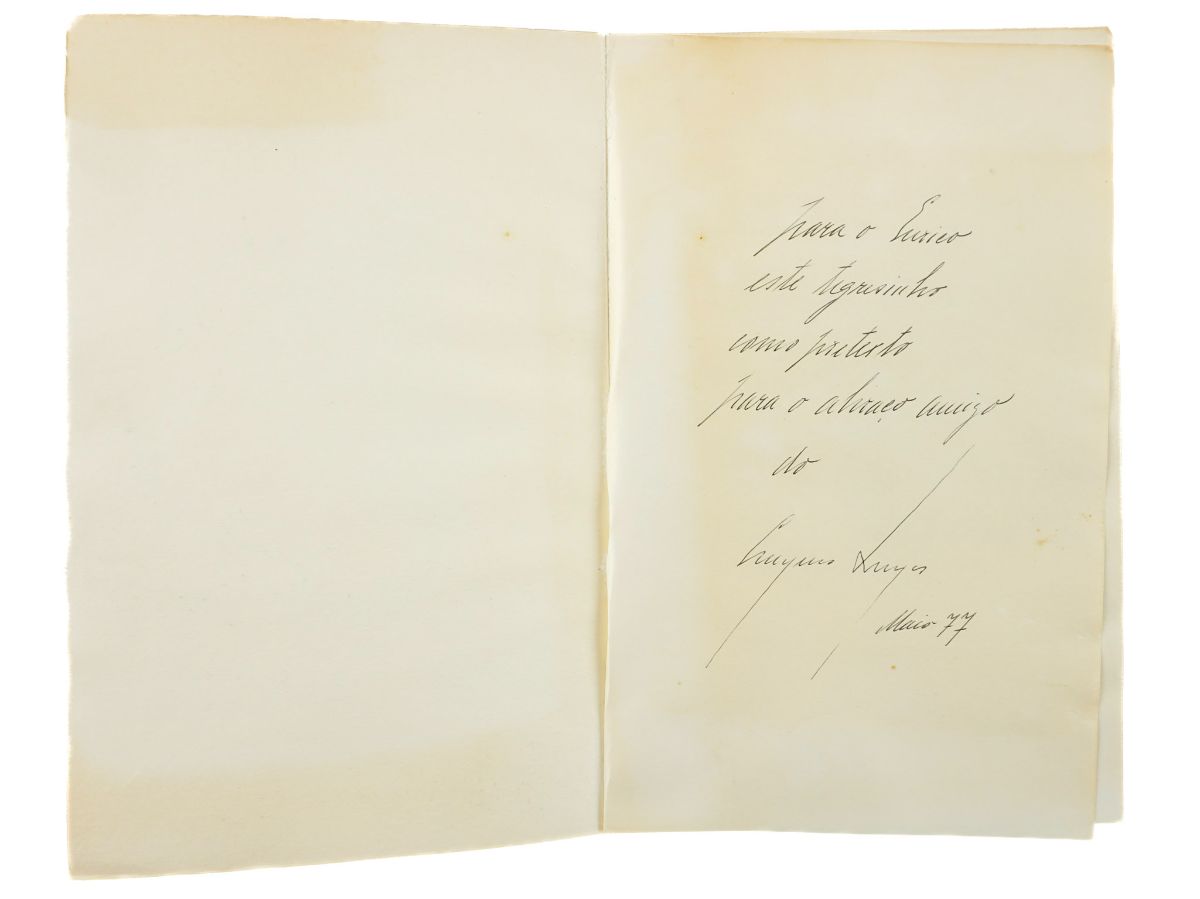 para o Eurico
este tigresinho
como pretexto
para o abraço amigo
do
Maio 77